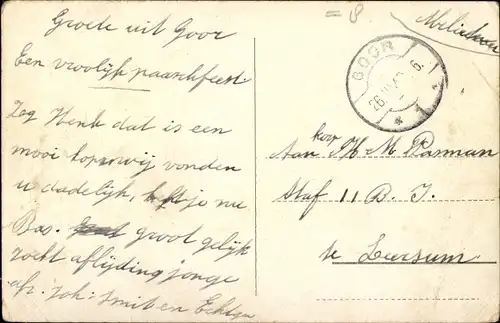 Groete uit Goor
Een vroolijk paaschfeest
Zeg Henk dat is een
mooi kopwij vonden
u dadelijk, heft je nu
Bas. groot gelijk
zoekt aflijding jonge
afz. Joh: Smit en Echtgn
= 8
GOOR
26.III.40 6.
korp
Aan H. M. Pasman
Staf 11 B. I.
te Leersum